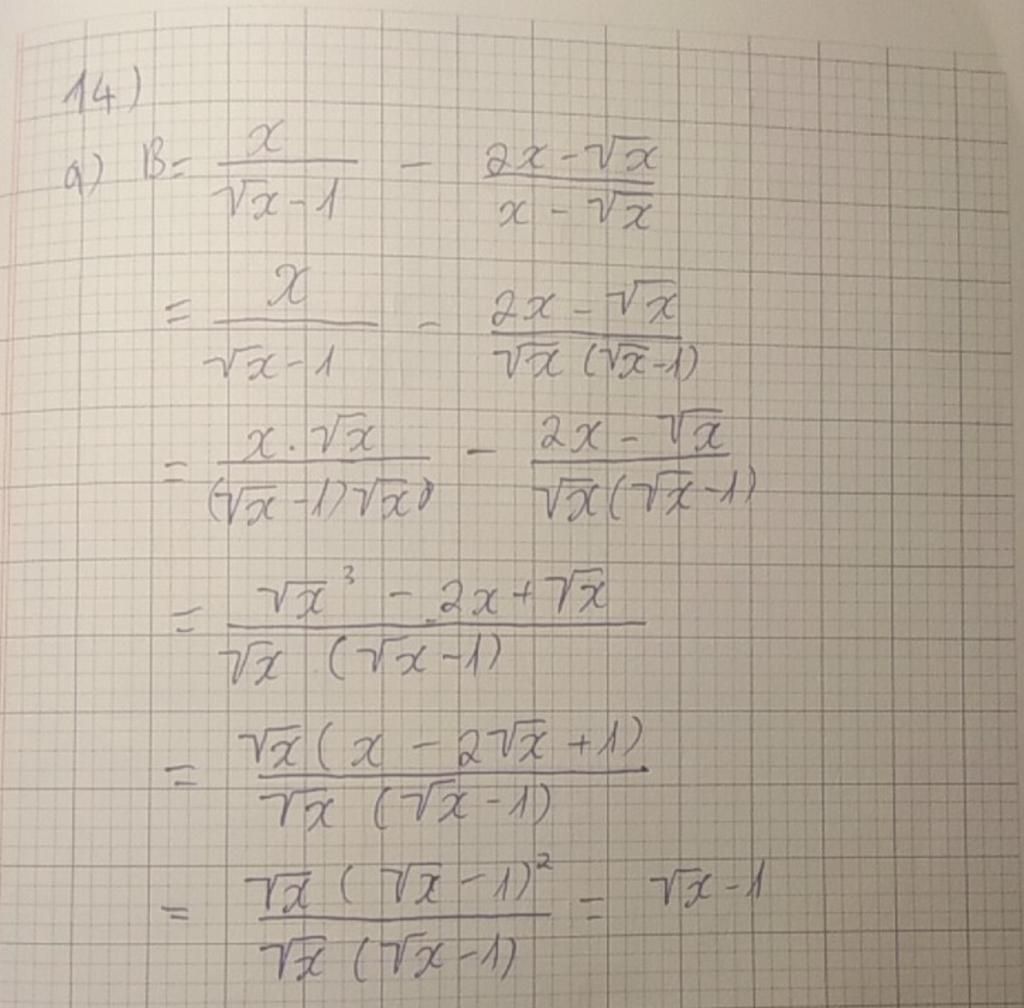 14)
a) B = \frac{x}{\sqrt{x}-1} - \frac{2x-\sqrt{x}}{x-\sqrt{x}}
= \frac{x}{\sqrt{x}-1} - \frac{2x-\sqrt{x}}{\sqrt{x}(\sqrt{x}-1)}
= \frac{x.\sqrt{x}}{(\sqrt{x}-1)\sqrt{x})} - \frac{2x-\sqrt{x}}{\sqrt{x}(\sqrt{x}-1)}
= \frac{\sqrt{x}^3-2x+\sqrt{x}}{\sqrt{x}(\sqrt{x}-1)}
= \frac{\sqrt{x}(x-2\sqrt{x}+1)}{\sqrt{x}(\sqrt{x}-1)}
= \frac{\sqrt{x}(\sqrt{x}-1)^2}{\sqrt{x}(\sqrt{x}-1)} = \sqrt{x}-1